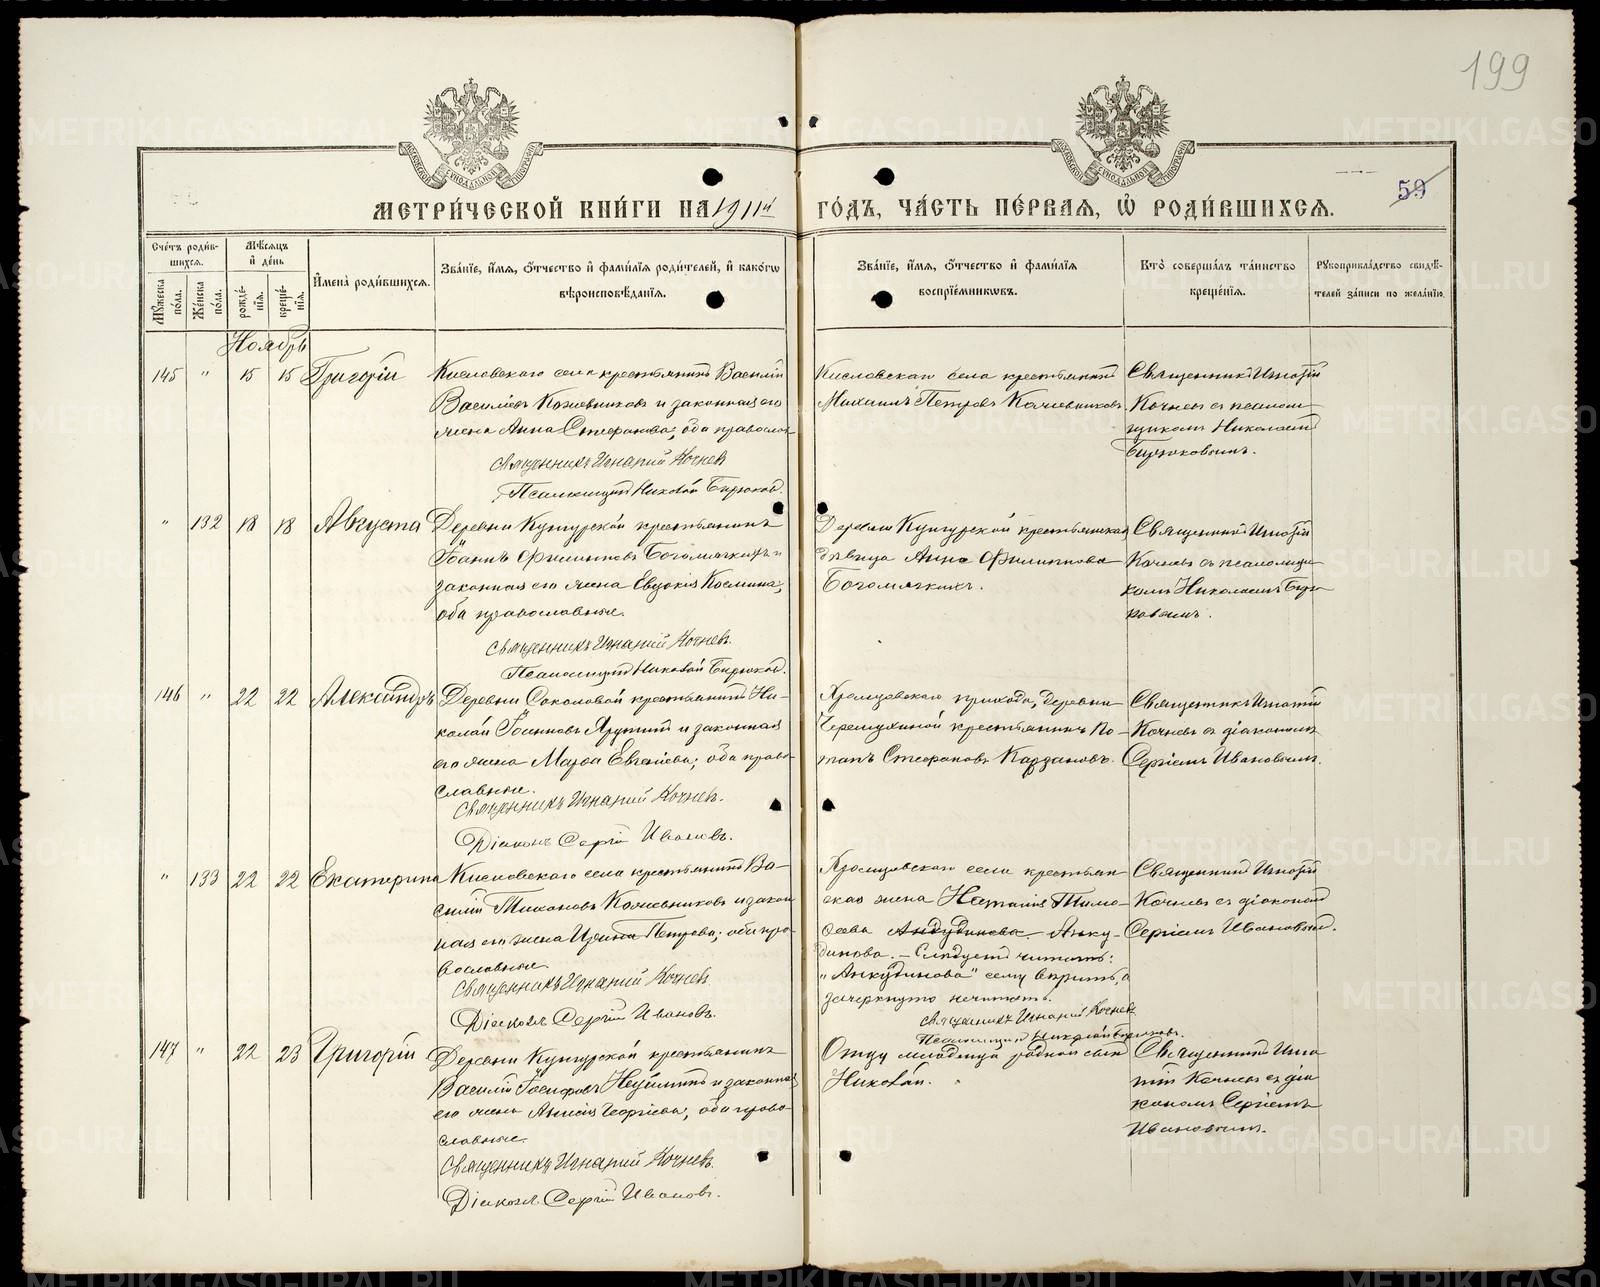 199
59
МЕТРИ́ЧЕСКОЙ КНИ́ГИ НА 1911й ГО́ДЪ, ЧА́СТЬ ПЕ́РВАЯ, Ѽ РОДИ́ВШИХСЯ.
Сче́тъ роди́вшихся.
Мꙋ́жеска по́ла.
Же́нска по́ла.
Мѣ́сяцъ и҆ де́нь
рожде́нїя.
креще́нїя.
И҆мена̀ роди́вшихся.
Зва́нїе, и҆́мя, ѻ҆́тчество и҆ фами́лїя роди́телей, и҆ како́гѡ вѣроисповѣ́данїя.
Зва́нїе, и҆́мя, ѻ҆́тчество и҆ фами́лїя воспрїе́мникѡвъ.
Кто̀ соверша́лъ та́инство креще́нїя.
Рꙋкоприкла́дство свидѣ́телей за́писи по жела́нїю.
Ноябрь
145 " 15 15 Григорій
Кисловскаго села крестьянинъ Василій
Васильевъ Кожевниковъ и законная его
жена Анна Стефанова; оба православ
священникъ Игнатій Кочневъ
Псаломщикъ Николай Бирюков.
Кисловскаго села крестьянинъ
Михаилъ Петровъ Кожевниковъ.
Священникъ Игнатій
Кочневъ съ псалом-
щикомъ Николаемъ
Бирюковымъ.
" 132 18 18 Августа
Деревни Кунгурской крестьянинъ
Іоаннъ Филипповъ Богомягкихъ и
законная его жена Евдокія Космина;
оба православные.
священникъ Игнатій Кочневъ.
Псаломщикъ Николай Бирюков.
Деревни Кунгурской крестьянская
дѣвица Анна Филиппова
Богомягкихъ.
Священникъ Игнатій
Кочневъ съ псаломщи-
комъ Николаемъ Бирю-
ковымъ.
146 " 22 22 Александръ
Деревни Соколовой крестьянинъ Ни-
колай Іоанновъ и законная
его жена Марѳа Евгеніева; оба право-
славные.
священникъ Игнатій Кочневъ.
Діаконъ Сергій Ивановъ.
Хромцовскаго прихода, деревни
Черемухиной крестьянинъ По-
тапъ Стефановъ Кардановъ.
Священникъ Игнатій
Кочневъ съ діакономъ
Сергіемъ Ивановымъ.
" 133 22 22 Екатерина
Кисловскаго села крестьянинъ Ва-
силій Тихоновъ Кожевниковъ и закон
ная его жена Ирина Петрова; оба пра-
вославные
священникъ Игнатій Кочневъ.
Діаконъ Сергій Ивановъ.
Хромцовскаго села крестьян-
ская жена Наталія Тимо-
ѳеева Андудинова Анку-
динова. – Слѣдуетъ читать:
"Анкудинова" сему вѣрить, а
зачеркнуто не читать.
священникъ Игнатій Кочнев
Псаломщикъ Николай Бирюковъ.
Священникъ Игнатій
Кочневъ съ діакономъ
Сергіемъ Ивановым.
147 " 22 23 Григорій
Деревни Кунгурской крестьянинъ
Василій Іосифовъ и законная
его жена Анисія Георгіева; оба право-
славные.
Священникъ Игнатій Кочневъ.
Діаконъ Сергій Ивановъ.
Отцу младенца родной сынъ
Николай.
Священникъ Игна
тій Кочневъ съ діа
кономъ Сергіемъ
Ивановымъ.
METRIKI.GASO-URAL.RU